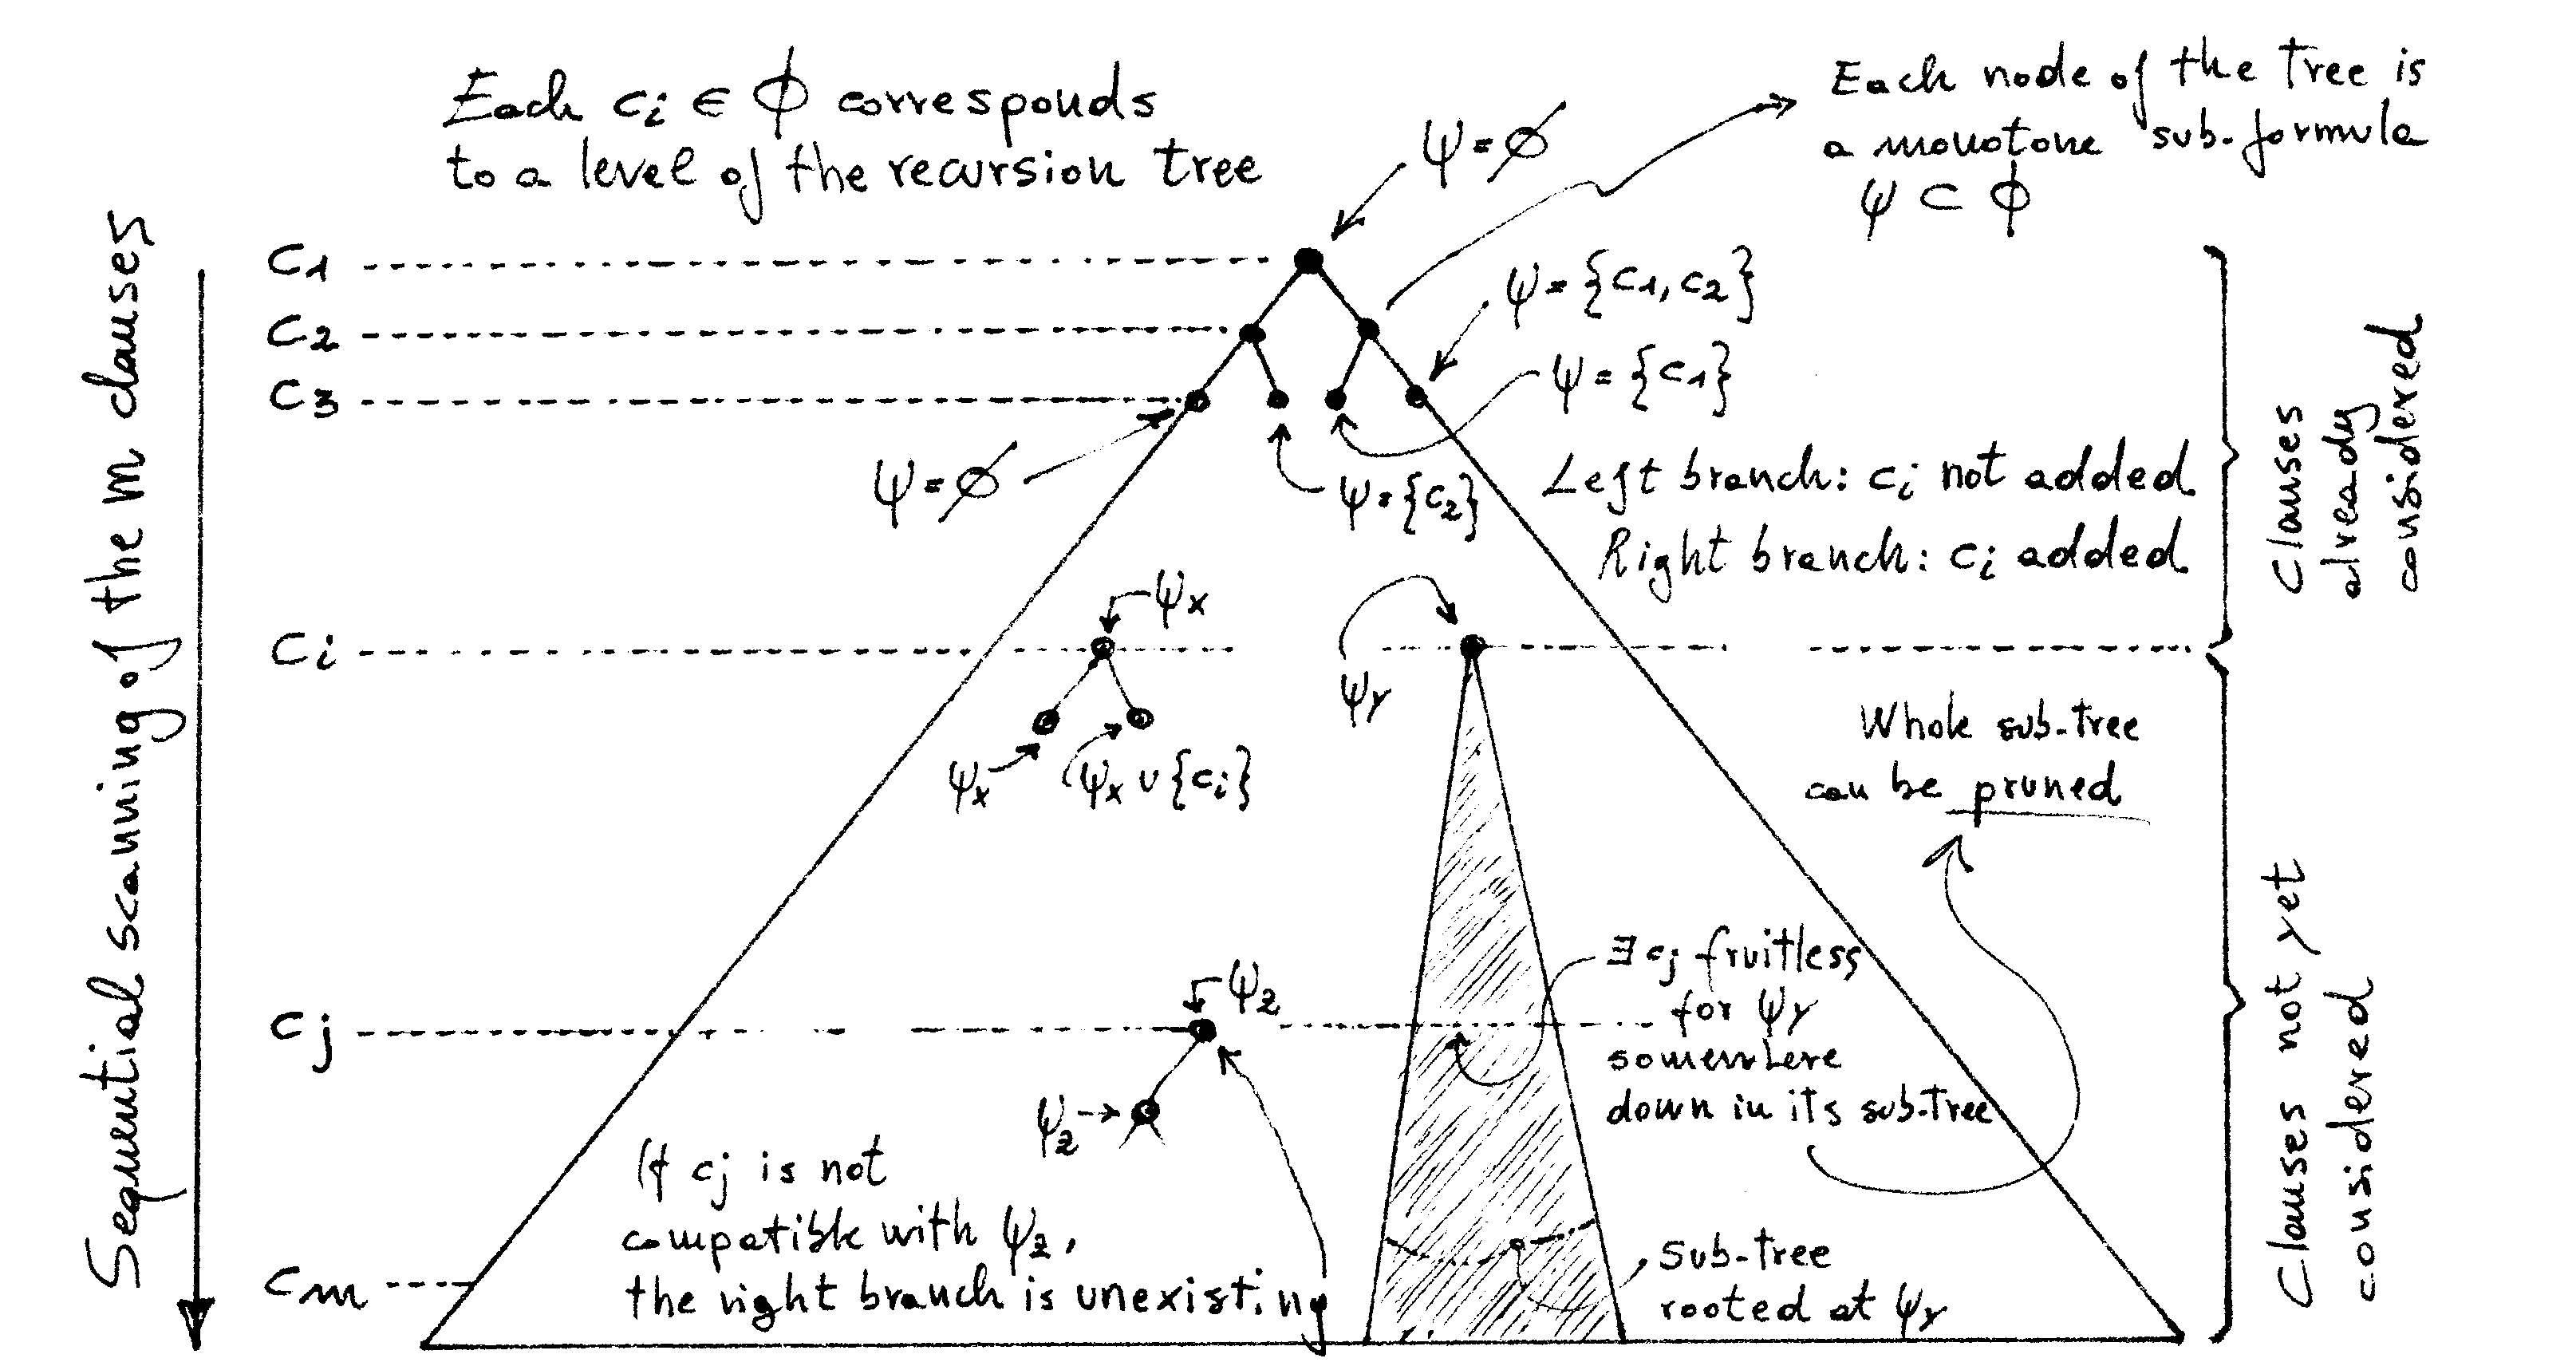 Each ci ∈ ϕ corresponds
to a level of the recursion tree
Each node of the tree is
a monotone sub-formula
ψ ⊂ ϕ
ψ = ∅
Sequential scanning of the m clauses
c1
c2
c3
ψ = {c1, c2}
ψ = {c1}
ψ = ∅
ψ = {c2}
Left branch: ci not added
Right branch: ci added
Clauses
already
considered
ci
ψx
ψy
ψx
ψx ∪ {ci}
Whole sub-tree
can be pruned
cj
ψz
ψz
∃ cj fruitless
for ψy
somewhere
down in its sub-tree
Clauses not yet
considered
If cj is not
compatible with ψz,
the right branch is unexisting
cm
Sub-tree
rooted at ψy